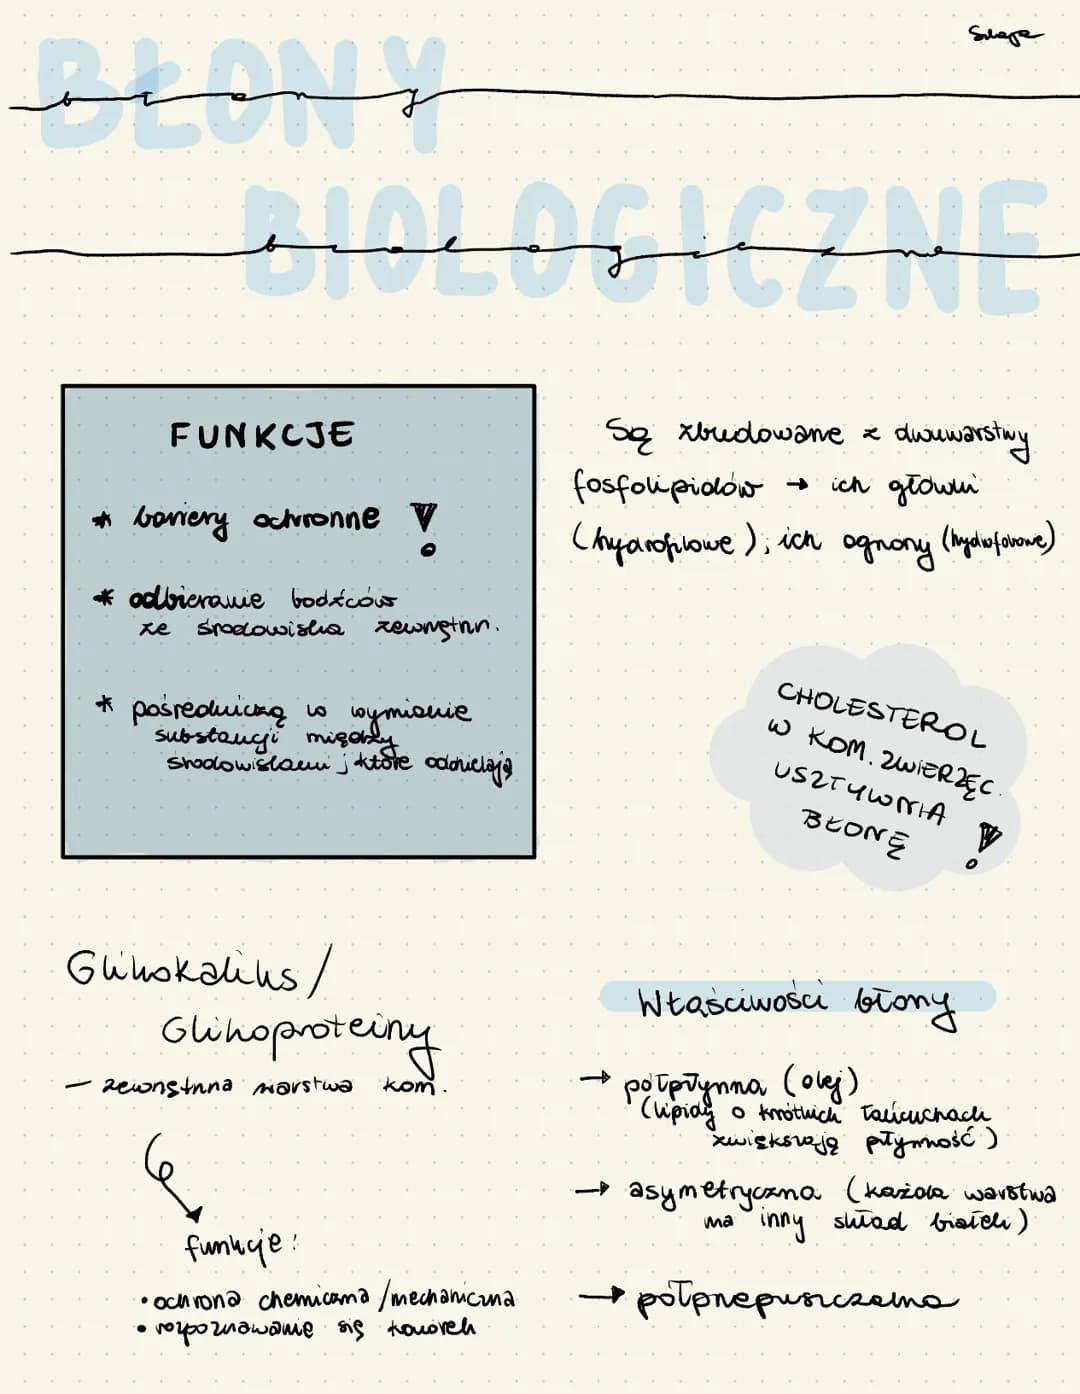 BŁONY
błony
BIOLOGICZNE
biologiczne
FUNKCJE
* bariery ochronne !
* odbieranie bodźców
ze środowiska zewnętrzn.
* pośredniczą w wymianie
substancji między
środowiskami j które oddzielają
Są zbudowane z dwuwarstwy
fosfolipidów → ich główki
(hydrofilowe); ich ogony (hydrofobowe)
CHOLESTEROL
W KOM. ZWIERZĘC.
USZTYWNIA
BŁONĘ !
Glikokaliks /
Glikoproteiny
- zewnętrzna warstwa kom.
funkcje:
• ochrona chemiczna / mechaniczna
• rozpoznawanie się komórek
Właściwości błony
→ półpłynna (olej)
(lipidy o krótkich łańcuchach
zwiększają płynność)
→ asymetryczna (każda warstwa
ma inny skład białek)
→ półprzepuszczalna